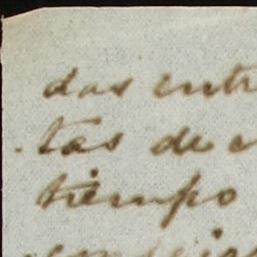 das entr
tas de
tiempo